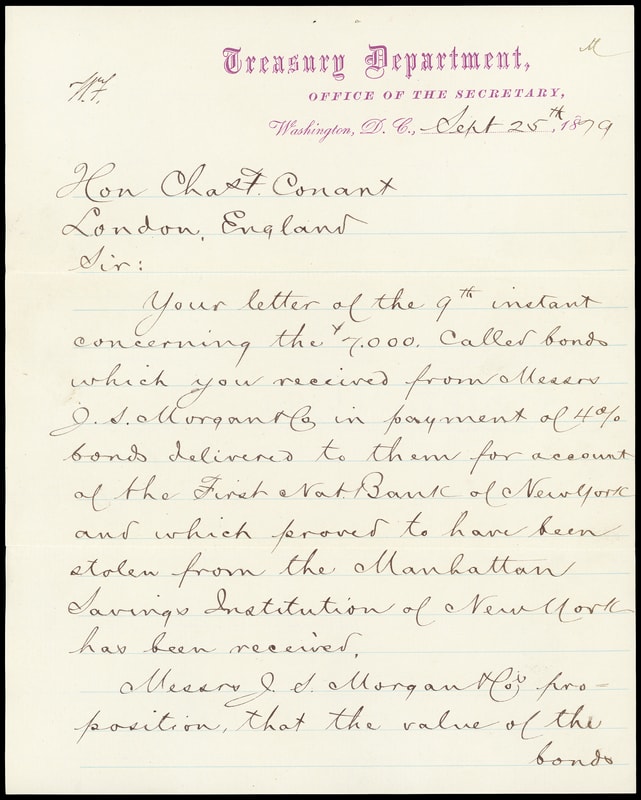 Treasury Department,
OFFICE OF THE SECRETARY,
Washington, D. C., Sept 25th, 1879
M
Hon Chas F. Conant
London, England
Sir:
Your letter of the 9th instant
concerning the $7.000. Called bonds
which you received from Messrs
J. S. Morgan & Co in payment of 4%
bonds delivered to them for account
of the First Nat Bank of New York
and which proved to have been
stolen from the Manhattan
Savings Institution of New York
has been received.
Messrs J. S. Morgan & Co's pro-
position, that the value of the
bonds